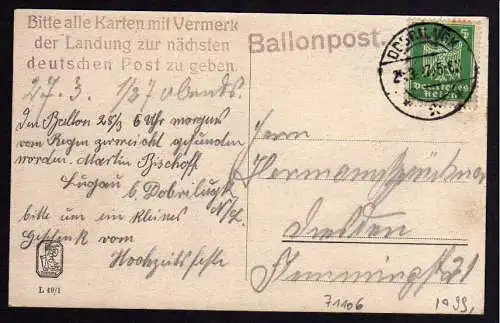 Bitte alle Karten mit Vermerk
der Landung zur nächsten
deutschen Post zu geben.
Ballonpost.
27. 3. 1/37 abends.
Den Ballon 28/3 6 Uhr morgens
vom Regen zerweicht gefunden
worden. Martin Bischoff
Lugau
b. Dobrilugk
N/L.
bitte um ein kleines
Geschenk vom
Hochzeitsfeste
Herrn
Hermann
Dresden
21
L 49/1
71106
5
Deutsches
Reich